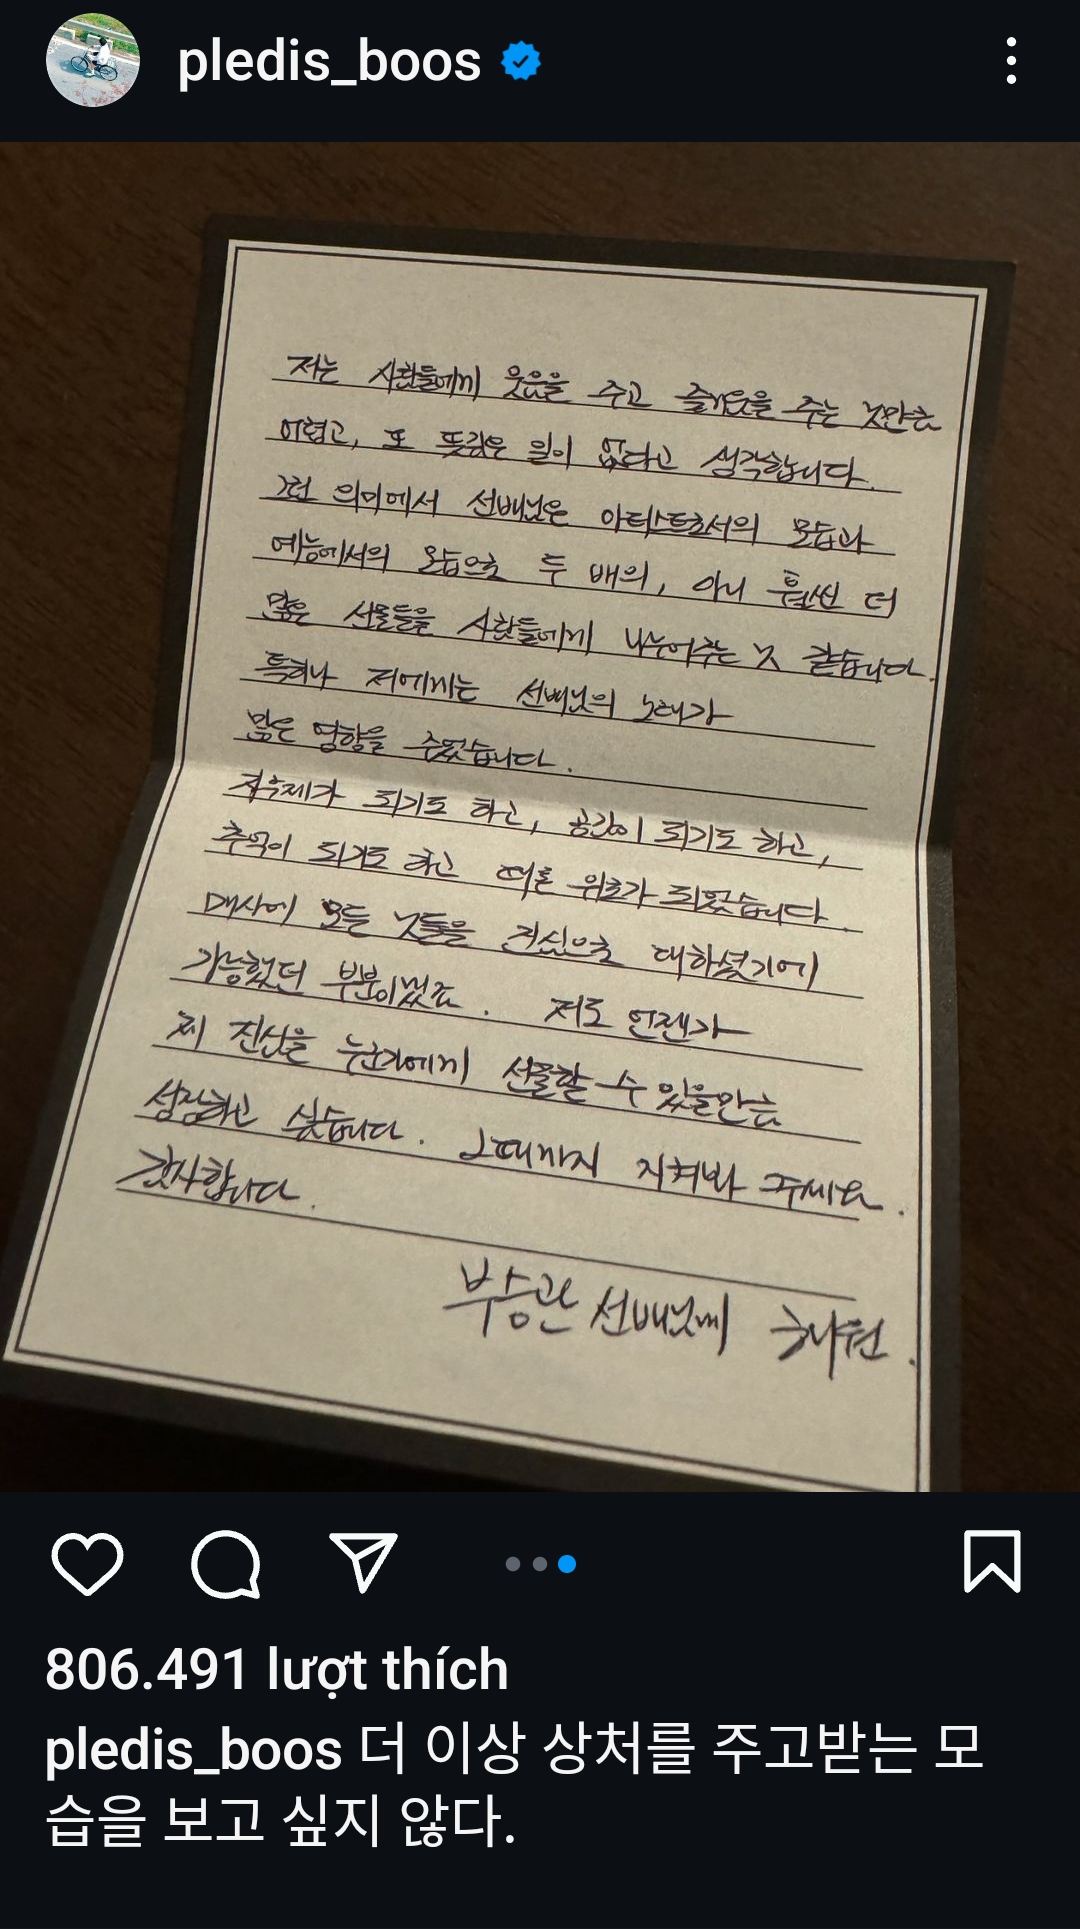 pledis_boos
저는 사람들에게 웃음을 주고 즐거움을 주는 것만큼
어렵고, 또 뜻깊은 일이 없다고 생각합니다.
그런 의미에서 선배님은 아티스트로서의 모습과
예능에서의 모습으로 두 배의, 아니 훨씬 더
많은 선물들을 사람들에게 나누어주는 것 같습니다.
특히나 저에게는 선배님의 노래가
많은 영향을 주었습니다.
자극제가 되기도 하고, 공감이 되기도 하고,
추억이 되기도 하고 때론 위로가 되었습니다
매사에 모든 것들을 진심으로 대하셨기에
가능했던 부분이겠죠. 저도 언젠가
제 진심을 누군가에게 선물할 수 있을만큼
성장하고 싶습니다. 그때까지 지켜봐 주세요.
감사합니다.
부승관 선배님께
806.491 lượt thích
pledis_boos 더 이상 상처를 주고받는 모
습을 보고 싶지 않다.